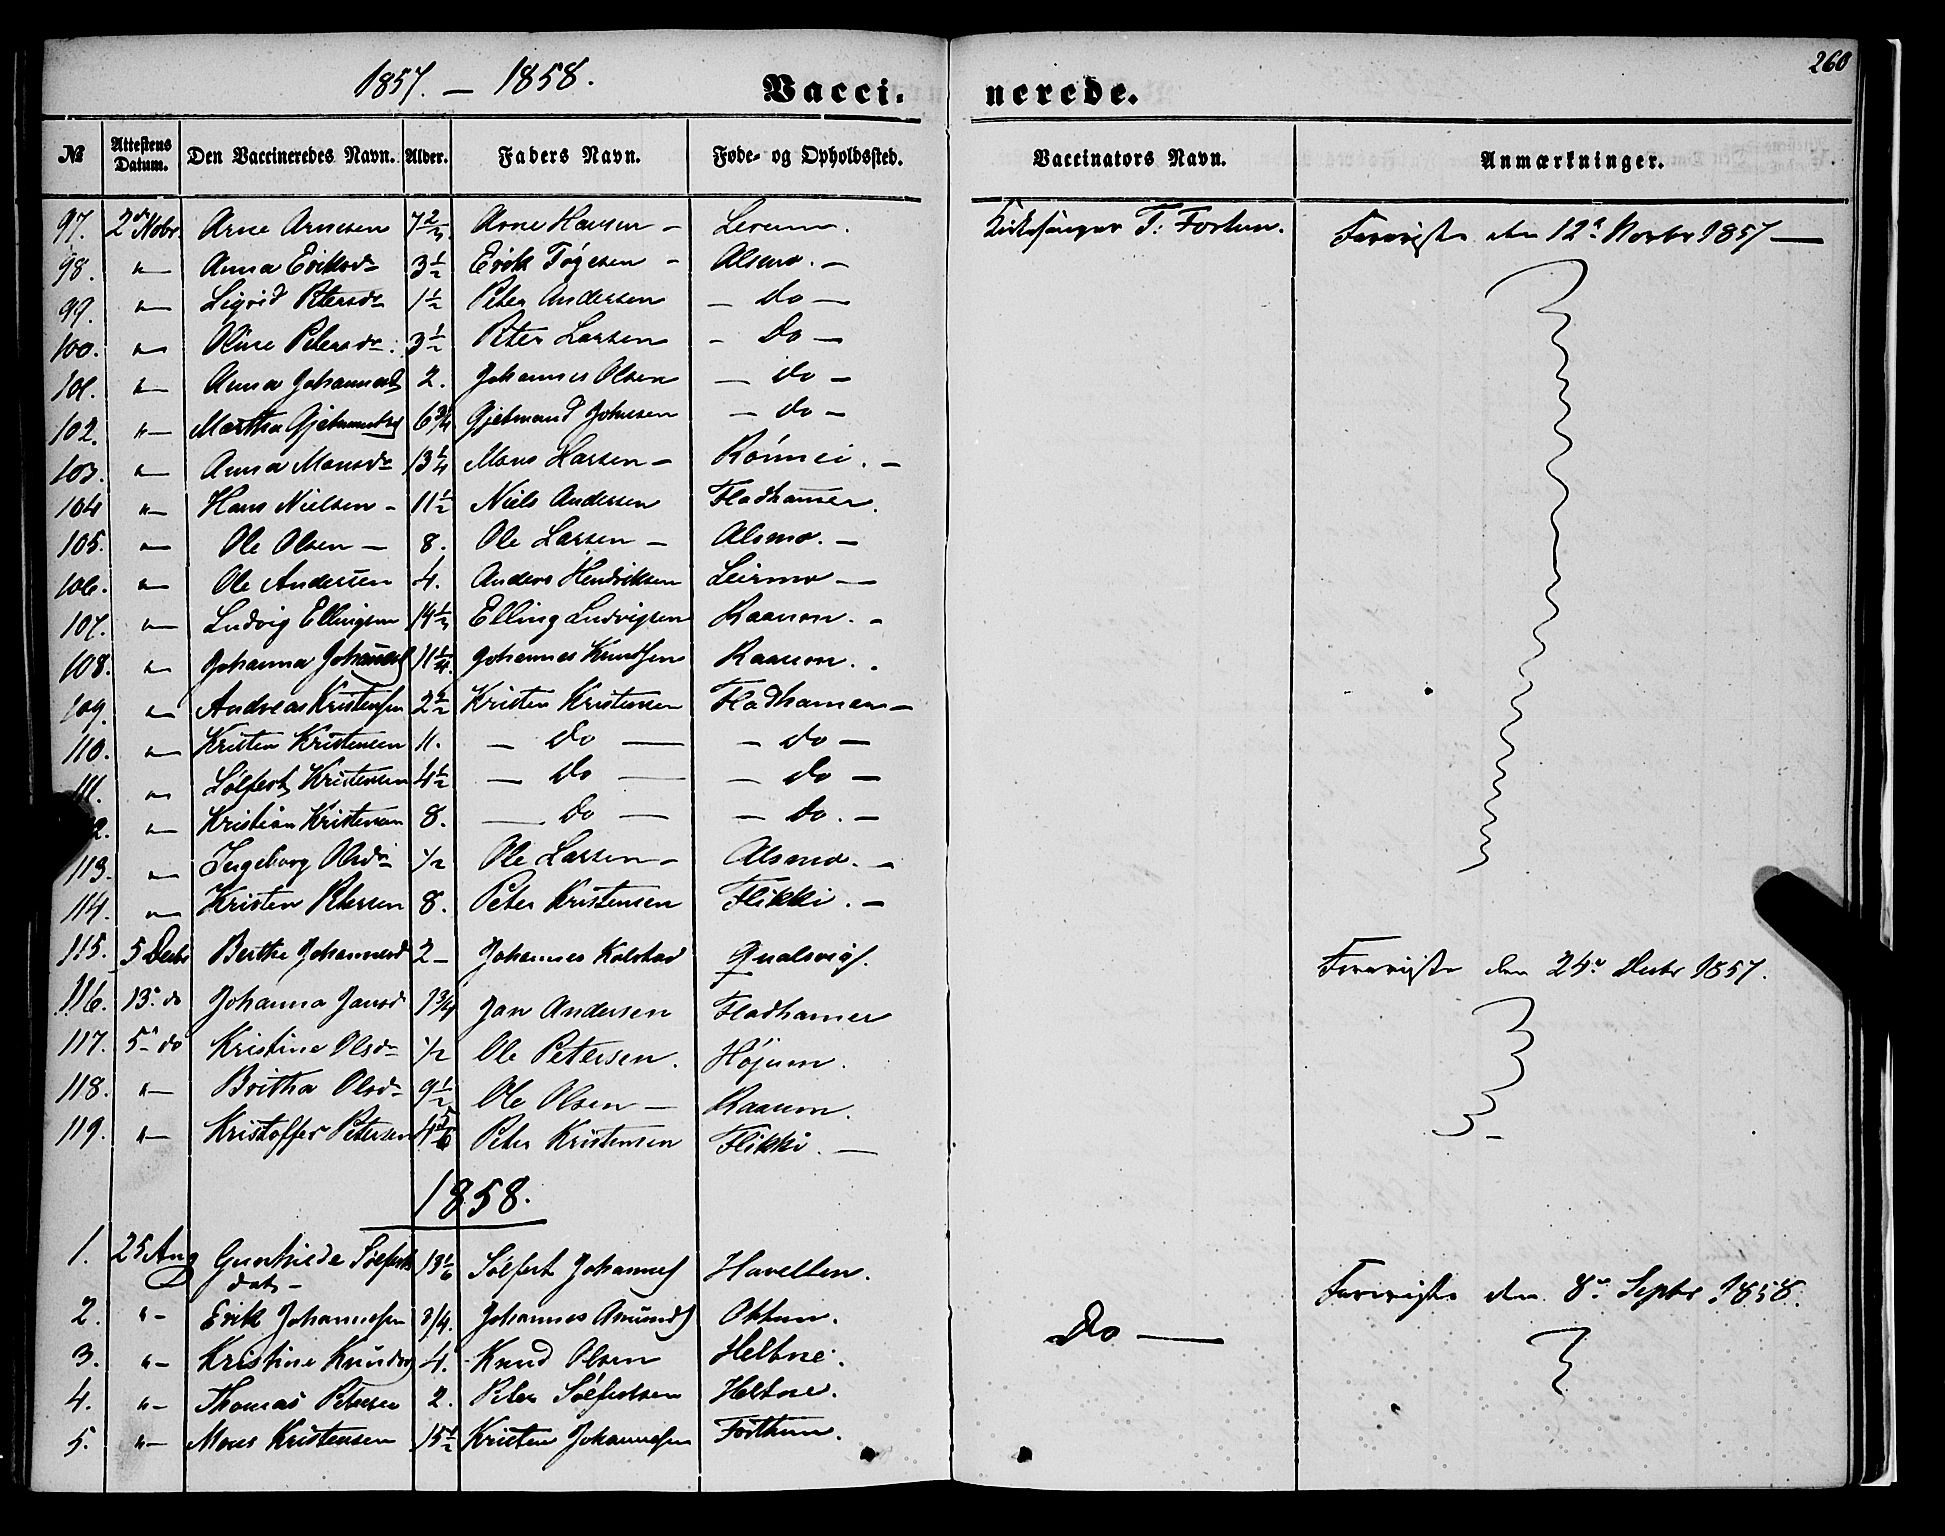 260
1857. — 1858.
Vacci- nerede.
№ Attestens Datum. Den Vaccineredes Navn. Alder. Faders Navn. Føde- og Opholdssted. Vaccinators Navn. Anmærkninger.
97. 2d Nobr. Arne Arnesen 7 2/3 Arne Hansen — Lerum. Kirkesanger T. Fortun. Foreviste den 12te Novbr 1857 —
98. "— Anna Eriksdr 3 1/2 Erik Tøgesen — Alsmo. —
99. "— Sigrid Petersdr 1 1/2 Peter Andersen — do —
100. "— Oline Petersdr. 3 1/2 Peter Larsen — Do —
101. "— Anna Johannesd 2. Johannes Olsen — do —
102. "— Martha Gjetmundsd 6 3/4 Gjetmund Johnsen — do —
103. "— Anna Monsdr 13 1/4 Mons Larsen — Rønnei. —
104 "— Hans Nielsen — 11 1/2 Niels Andersen Fladhamer.
105. "— Ole Olsen — 8. Ole Larsen — Alsmo. —
106. "— Ole Andersen 4. Anders Henriksen Leirmo —
107. "— Ludvig Ellingsen 14 1/3 Elling Ludvigsen Raaum. —
108. "— Johanna Johannesd 11 1/4. Johannes Knudsen Raaum. .
109. "— Andreas Kristensen 2 1/2 Kristen Kristensen Fladhamer —
110. "— Kristen Kristensen 11. — do — — do —
111. "— Sølfest Kristensen 4 1/2 — do — — do —
2. "— Kristian Kristensen 8. — do — — do. —
113. "— Ingeborg Olsdr 1/2 Ole Larsen — Alsmo. —
114. "— Kristen Petersen 8. Peter Kristensen Flikki. —
115. 5 Decbr Berthe Johannesd 2 — Johannes Kolstad Qualsvig. Foreviste den 24de Decbr 1857.
116. 13. do Johanna Jansd 1 3/4 Jan Andersen Fladhamer
117. 5 — do Kristine Olsdr 1/2 Ole Petersen. Højum.
118. "— Britha Olsdr 9 1/2 Ole Olsen — Raaum.
119. "— Kristoffer Petersen 4 5/6 Peter Kristensen Flikki. —
1858.
1. 25 Aug Gunhilde Sølfests 13 1/6 Sølfest Johannes Havelten. Foreviste den 8de Septbr 1858.
datr —
2. "— Erik Johannesen 3/4. Johannes Amunds Oktum. Do —
3. "— Kristine Knudsd 4. Knud Olsen Heltne.
4. "— Thomas Petersen 2. Peter Sølfestsen Heltne.
5. "— Mons Kristensen 15 1/2 Kristen Johannesen Forthun.